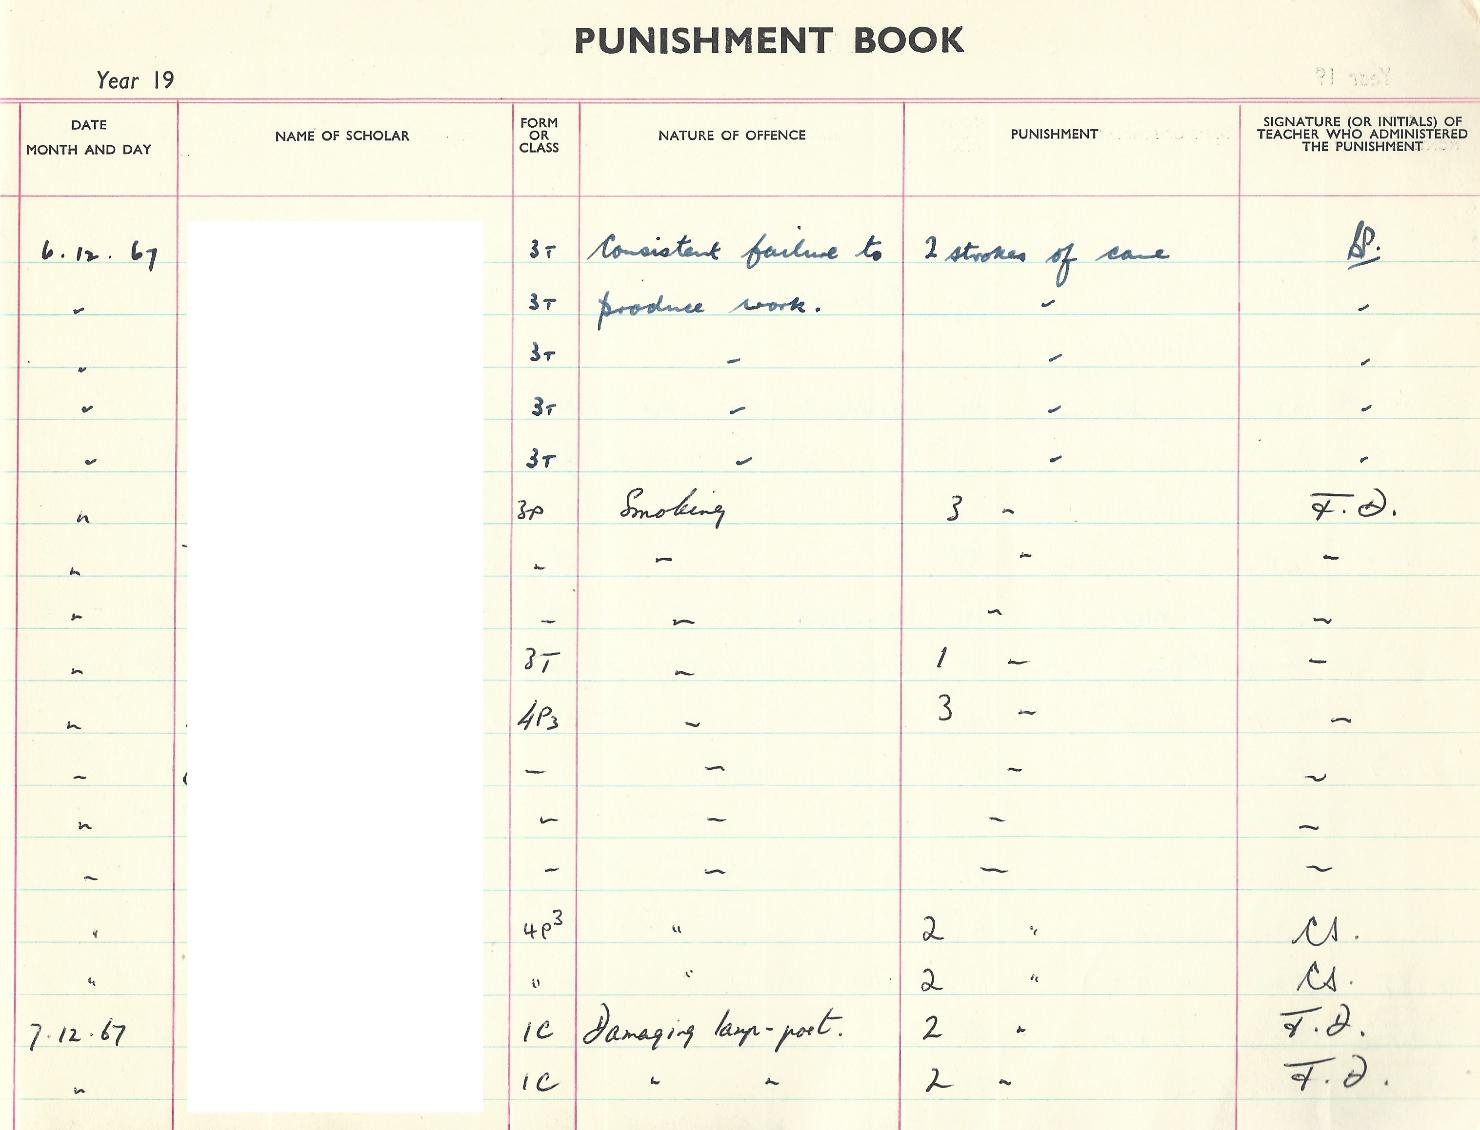 PUNISHMENT BOOK
Year 19
DATE MONTH AND DAY NAME OF SCHOLAR FORM OR CLASS NATURE OF OFFENCE PUNISHMENT SIGNATURE (OR INITIALS) OF TEACHER WHO ADMINISTERED THE PUNISHMENT
6.12.67 3T Consistent failure to 2 strokes of cane
" 3T produce work. " "
" 3T " " "
" 3T " " "
" 3T " " "
" 3P Smoking 3 " F.D.
" " " " "
" " " " "
" 3T " 1 " "
" 4P3 " 3 " "
" " " " "
" " " " "
" " " " "
" 4P3 " 2 " CS.
" " " 2 " CS.
7.12.67 1C Damaging lamp-post. 2 " F.D.
" 1C " " 2 " F.D.